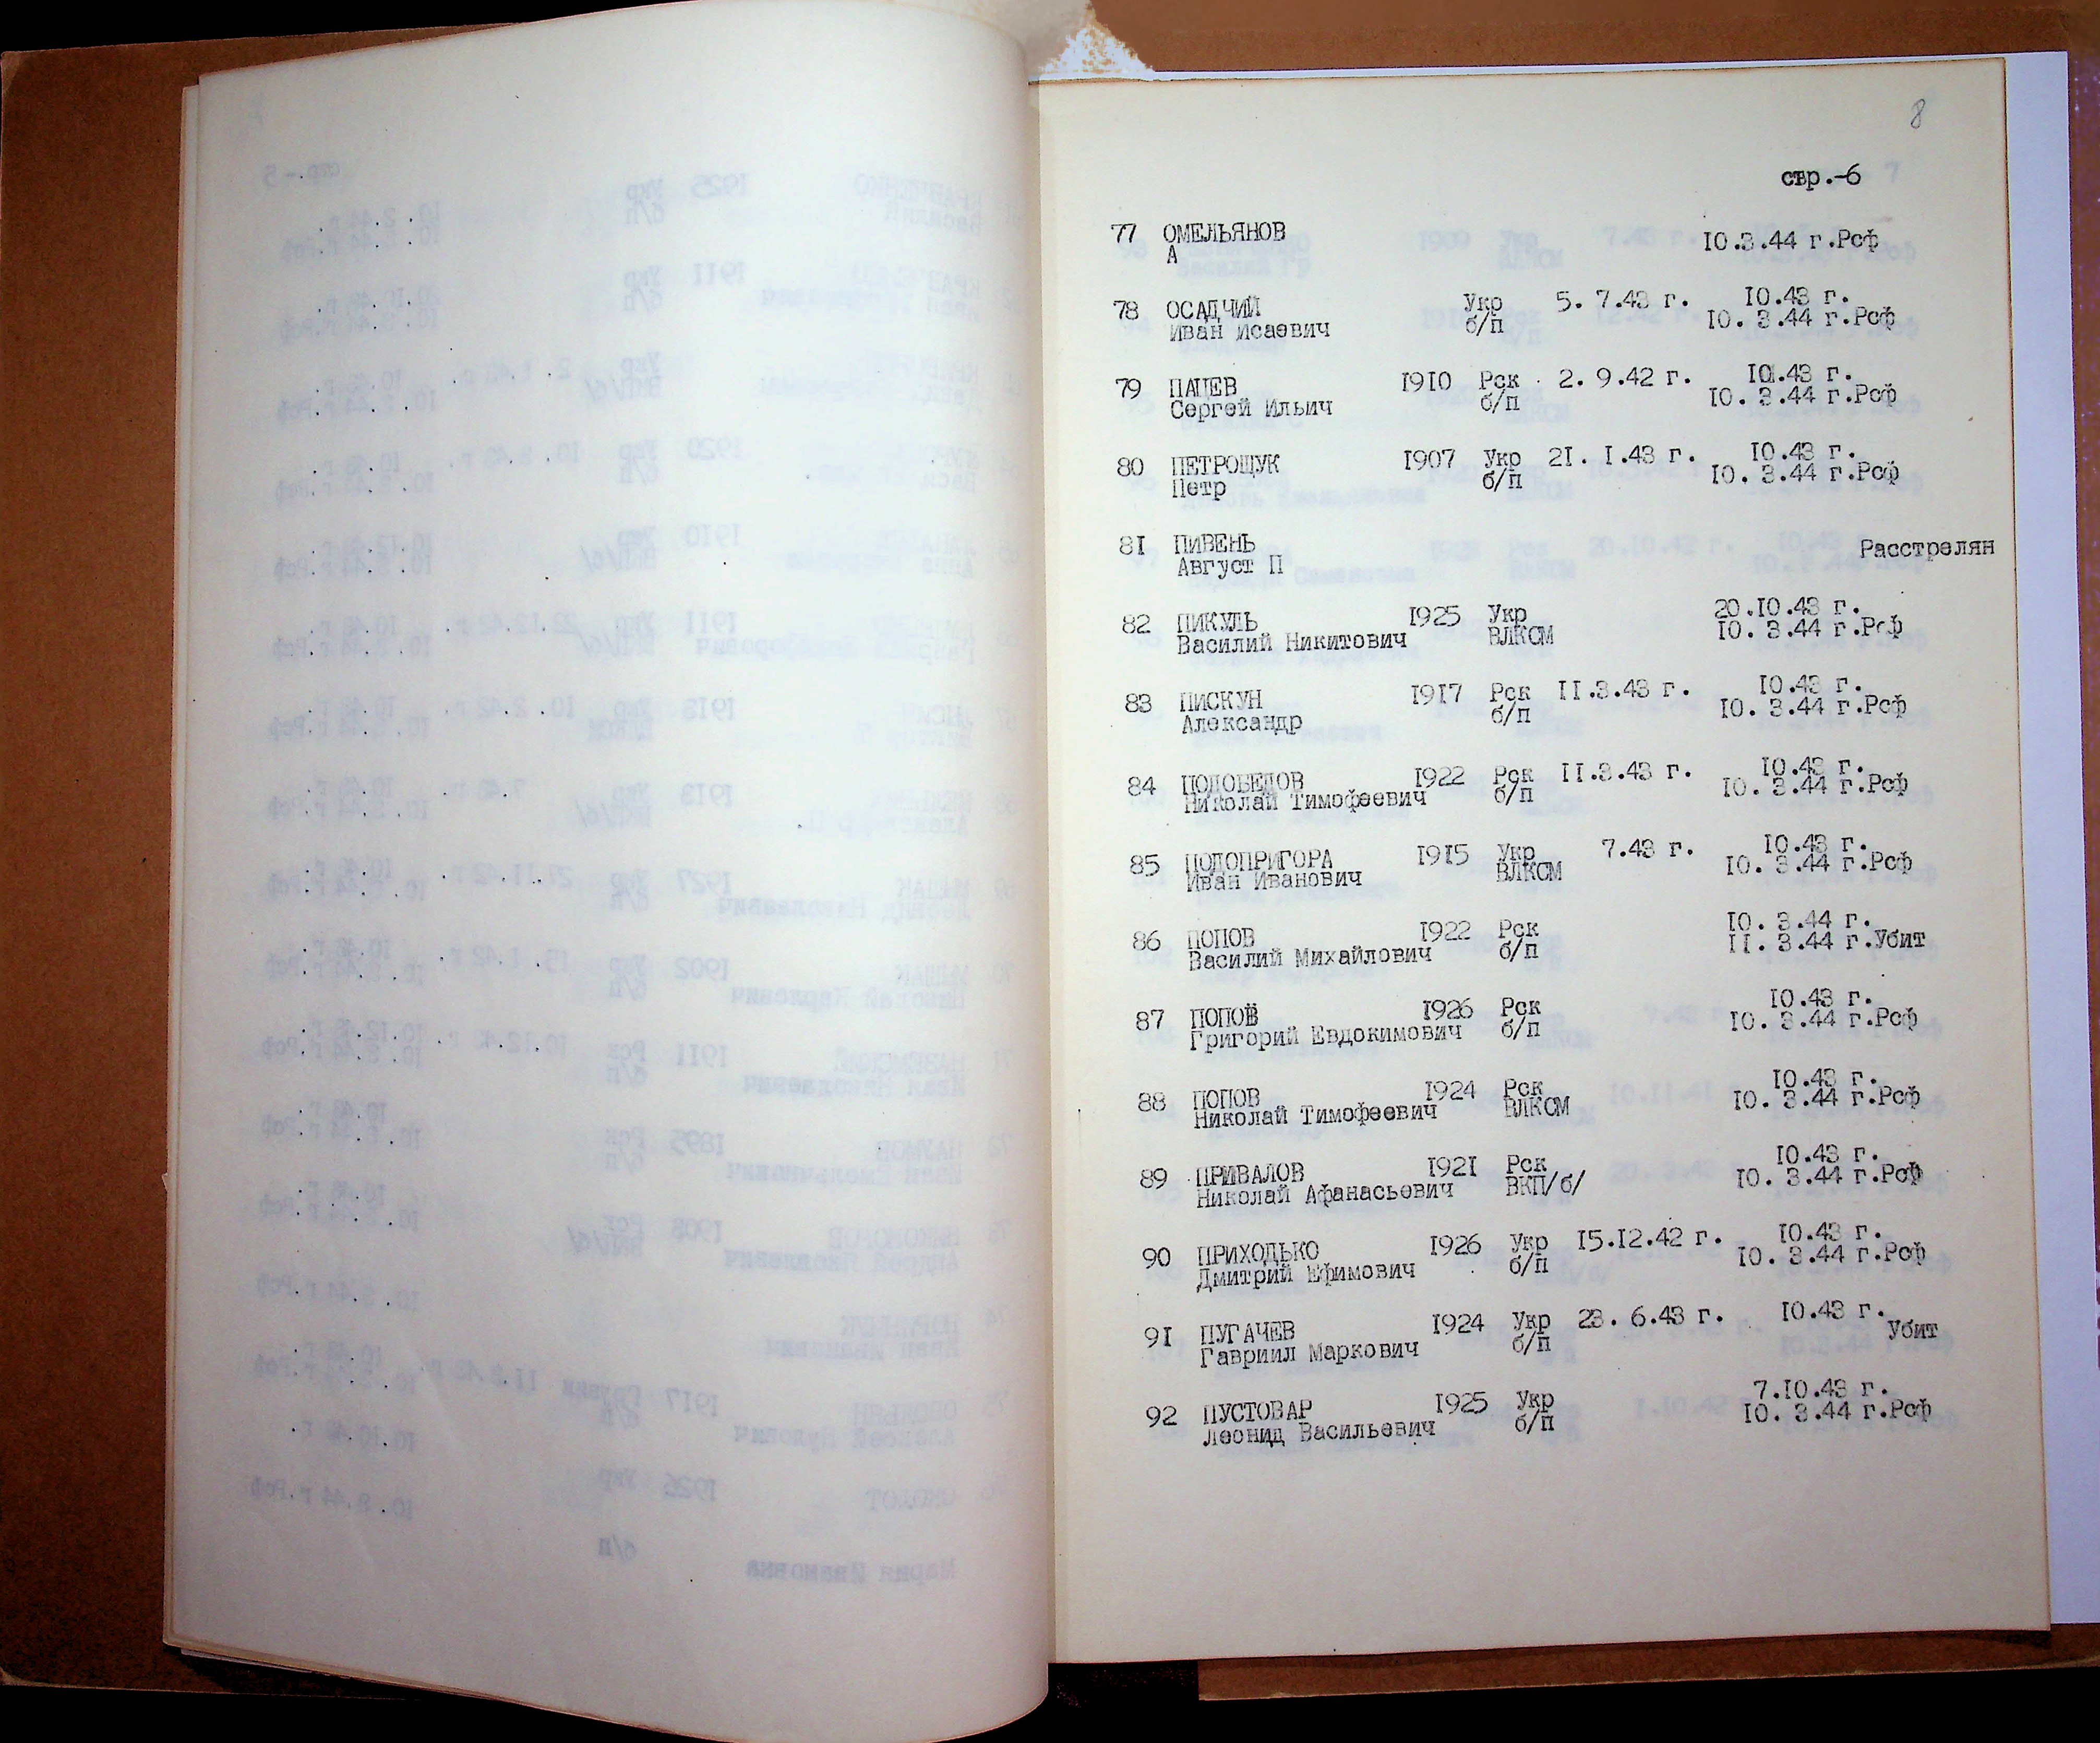 8
стр.-6
77 ОМЕЛЬЯНОВ 10.3.44 г.Рсф
А
78 ОСАДЧИЙ Укр 5. 7.43 г. 10.43 г.
Иван Исаевич б/п 10. 3.44 г.Рсф
79 ПАЦЕВ 1910 Рск 2. 9.42 г. 10.43 г.
Сергей Ильич б/п 10. 3.44 г.Рсф
80 ПЕТРОЩУК 1907 Укр 21. 1.43 г. 10.43 г.
Петр б/п 10. 3.44 г.Рсф
81 ПИВЕНЬ Расстрелян
Август П
82 ПИКУЛЬ 1925 Укр 20.10.43 г.
Василий Никитович ВЛКСМ 10. 3.44 г.Рсф
83 ПИСКУН 1917 Рск 11.3.43 г. 10.43 г.
Александр б/п 10. 3.44 г.Рсф
84 ПОДОБЕДОВ 1922 Рск 11.3.43 г. 10.43 г.
Николай Тимофеевич б/п 10. 3.44 г.Рсф
85 ПОДОПРИГОРА 1915 Укр 7.43 г. 10.43 г.
Иван Иванович ВЛКСМ 10. 3.44 г.Рсф
86 ПОПОВ 1922 Рск 10. 3.44 г.
Василий Михайлович б/п 11. 3.44 г.Убит
87 ПОПОВ 1926 Рск 10.43 г.
Григорий Евдокимович б/п 10. 3.44 г.Рсф
88 ПОПОВ 1924 Рск 10.43 г.
Николай Тимофеевич ВЛКСМ 10. 3.44 г.Рсф
89 ПРИВАЛОВ 1921 Рск 10.43 г.
Николай Афанасьевич ВКП/б/ 10. 3.44 г.Рсф
90 ПРИХОДЬКО 1926 Укр 15.12.42 г. 10.43 г.
Дмитрий Ефимович б/п 10. 3.44 г.Рсф
91 ПУГАЧЕВ 1924 Укр 23. 6.43 г. 10.43 г.
Гавриил Маркович б/п Убит
92 ПУСТОВАР 1925 Укр 7.10.43 г.
Леонид Васильевич б/п 10. 3.44 г.Рсф